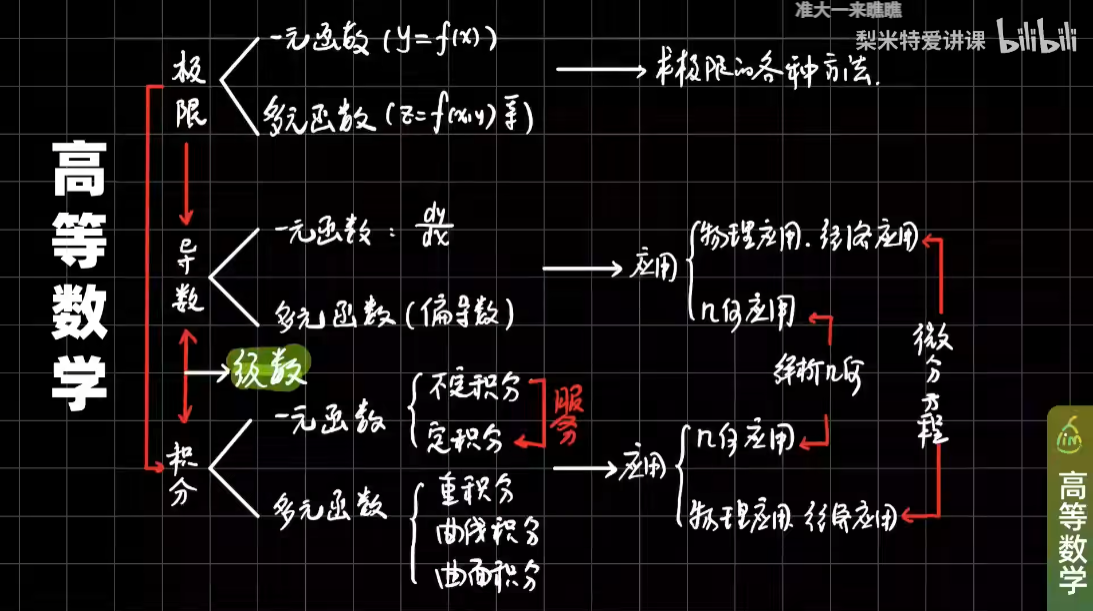 准大一来瞧瞧
梨米特爱讲课 bilibili
高等数学
极限
一元函数 (y=f(x))
多元函数 (z=f(x,y)等)
求极限的各种方法.
导数
一元函数: dy/dx
多元函数 (偏导数)
应用
物理应用.经济应用
几何应用
级数
解析几何
微分方程
积分
一元函数
不定积分
定积分
服务
多元函数
重积分
曲线积分
曲面积分
应用
几何应用
物理应用 经济应用
lim
高等数学